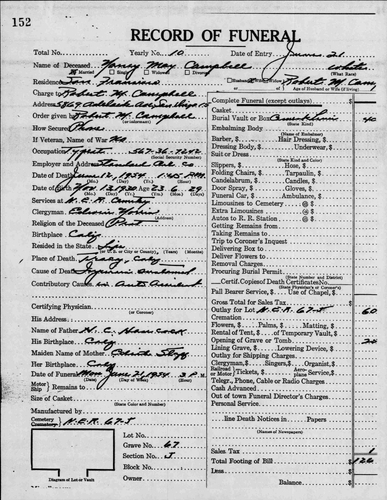 152
RECORD OF FUNERAL
Total No. Yearly No. 10 Date of Entry June 21
Name of Deceased Nancy May Campbell White
Married Single Widowed Divorced (What Race)
Residence San Francisco Husband Robert M. Camp
Charge to Robert M. Campbell Age of Husband or Wife (if living)
Address 5869 Adelaide Ave, San Diego 15
Order Given by Robert M. Campbell
How Secured Phone
If Veteran, Name of War No
Occupation Typist 567-36-7242
Social Security Number
Employer and Address Standard Oil Co.
Date of Death June 12, 1954 1:45 P.M.
Date of Birth Nov 13, 1930 Age 23 6 29
Services at
Clergyman Calvin
Religion of the Deceased Prot
Birthplace Calif
Resided in the State Life
Place of Death Tracy, Calif
Cause of Death
Contributory Causes Auto Accident
Certifying Physician
(or Coroner)
His Address
Name of Father N. C. Hancock
His Birthplace Calif
Maiden Name of Mother
Her Birthplace Calif
Date of Funeral Mon June 21, 1954 2 P.M.
(Date) (Day) (Hour)
Motor Ship Remains to
Size of Casket
Manufactured by
Cemetery Crematory 67-J
Lot No.
Grave No. 67
Section No. J
Block No.
Owner
Diagram of Lot or Vault
Complete Funeral (except outlays) $
Casket
Burial Vault or Box Cement Liner 40
(State Kind)
Embalming Body
(Name of Embalmer)
Barber, $ Hair Dressing, $
Dressing Body, $ Underwear, $
Suit or Dress
(State Kind and Color)
Slippers, $ Hose, $
Folding Chairs, $ Tarpaulin, $
Candelabrum, $ Candles, $
Door Spray, $ Gloves, $
Funeral Car, $ Ambulance, $
Limousines to Cemetery @ $
Extra Limousines @ $
Autos to R. R. Station @ $
Getting Remains from
Taking Remains to
Trip to Coroner's Inquest
Delivering Box to
Deliver Flowers to
Removal Charges
Procuring Burial Permit
(State Number and District)
Certif. Copies of Death Certificates No.
(State Permanency's or Coroner's)
Pall Bearer Service, $ Use of Chapel, $
Gross Total for Sales Tax $
Outlay for Lot 67-J 60
Cremation
Flowers, $ Palms, $ Matting, $
Rental of Tent, $ of Temporary Vault, $
Opening of Grave or Tomb
Lining Grave, $ Lowering Device, $
Outlay for Shipping Charges
Clergyman, $ Singers, $ Organist, $
Railroad or Motor Tickets, $ Aeroplane Service, $
Telegr., Phone, Cable or Radio Charges
Cash Advanced
Out of town Funeral Director's Charges
Personal Service
line Death Notices in Papers
(Names of Newspapers)
Sales Tax 1
Total Footing of Bill $ 126
Less $
Balance $